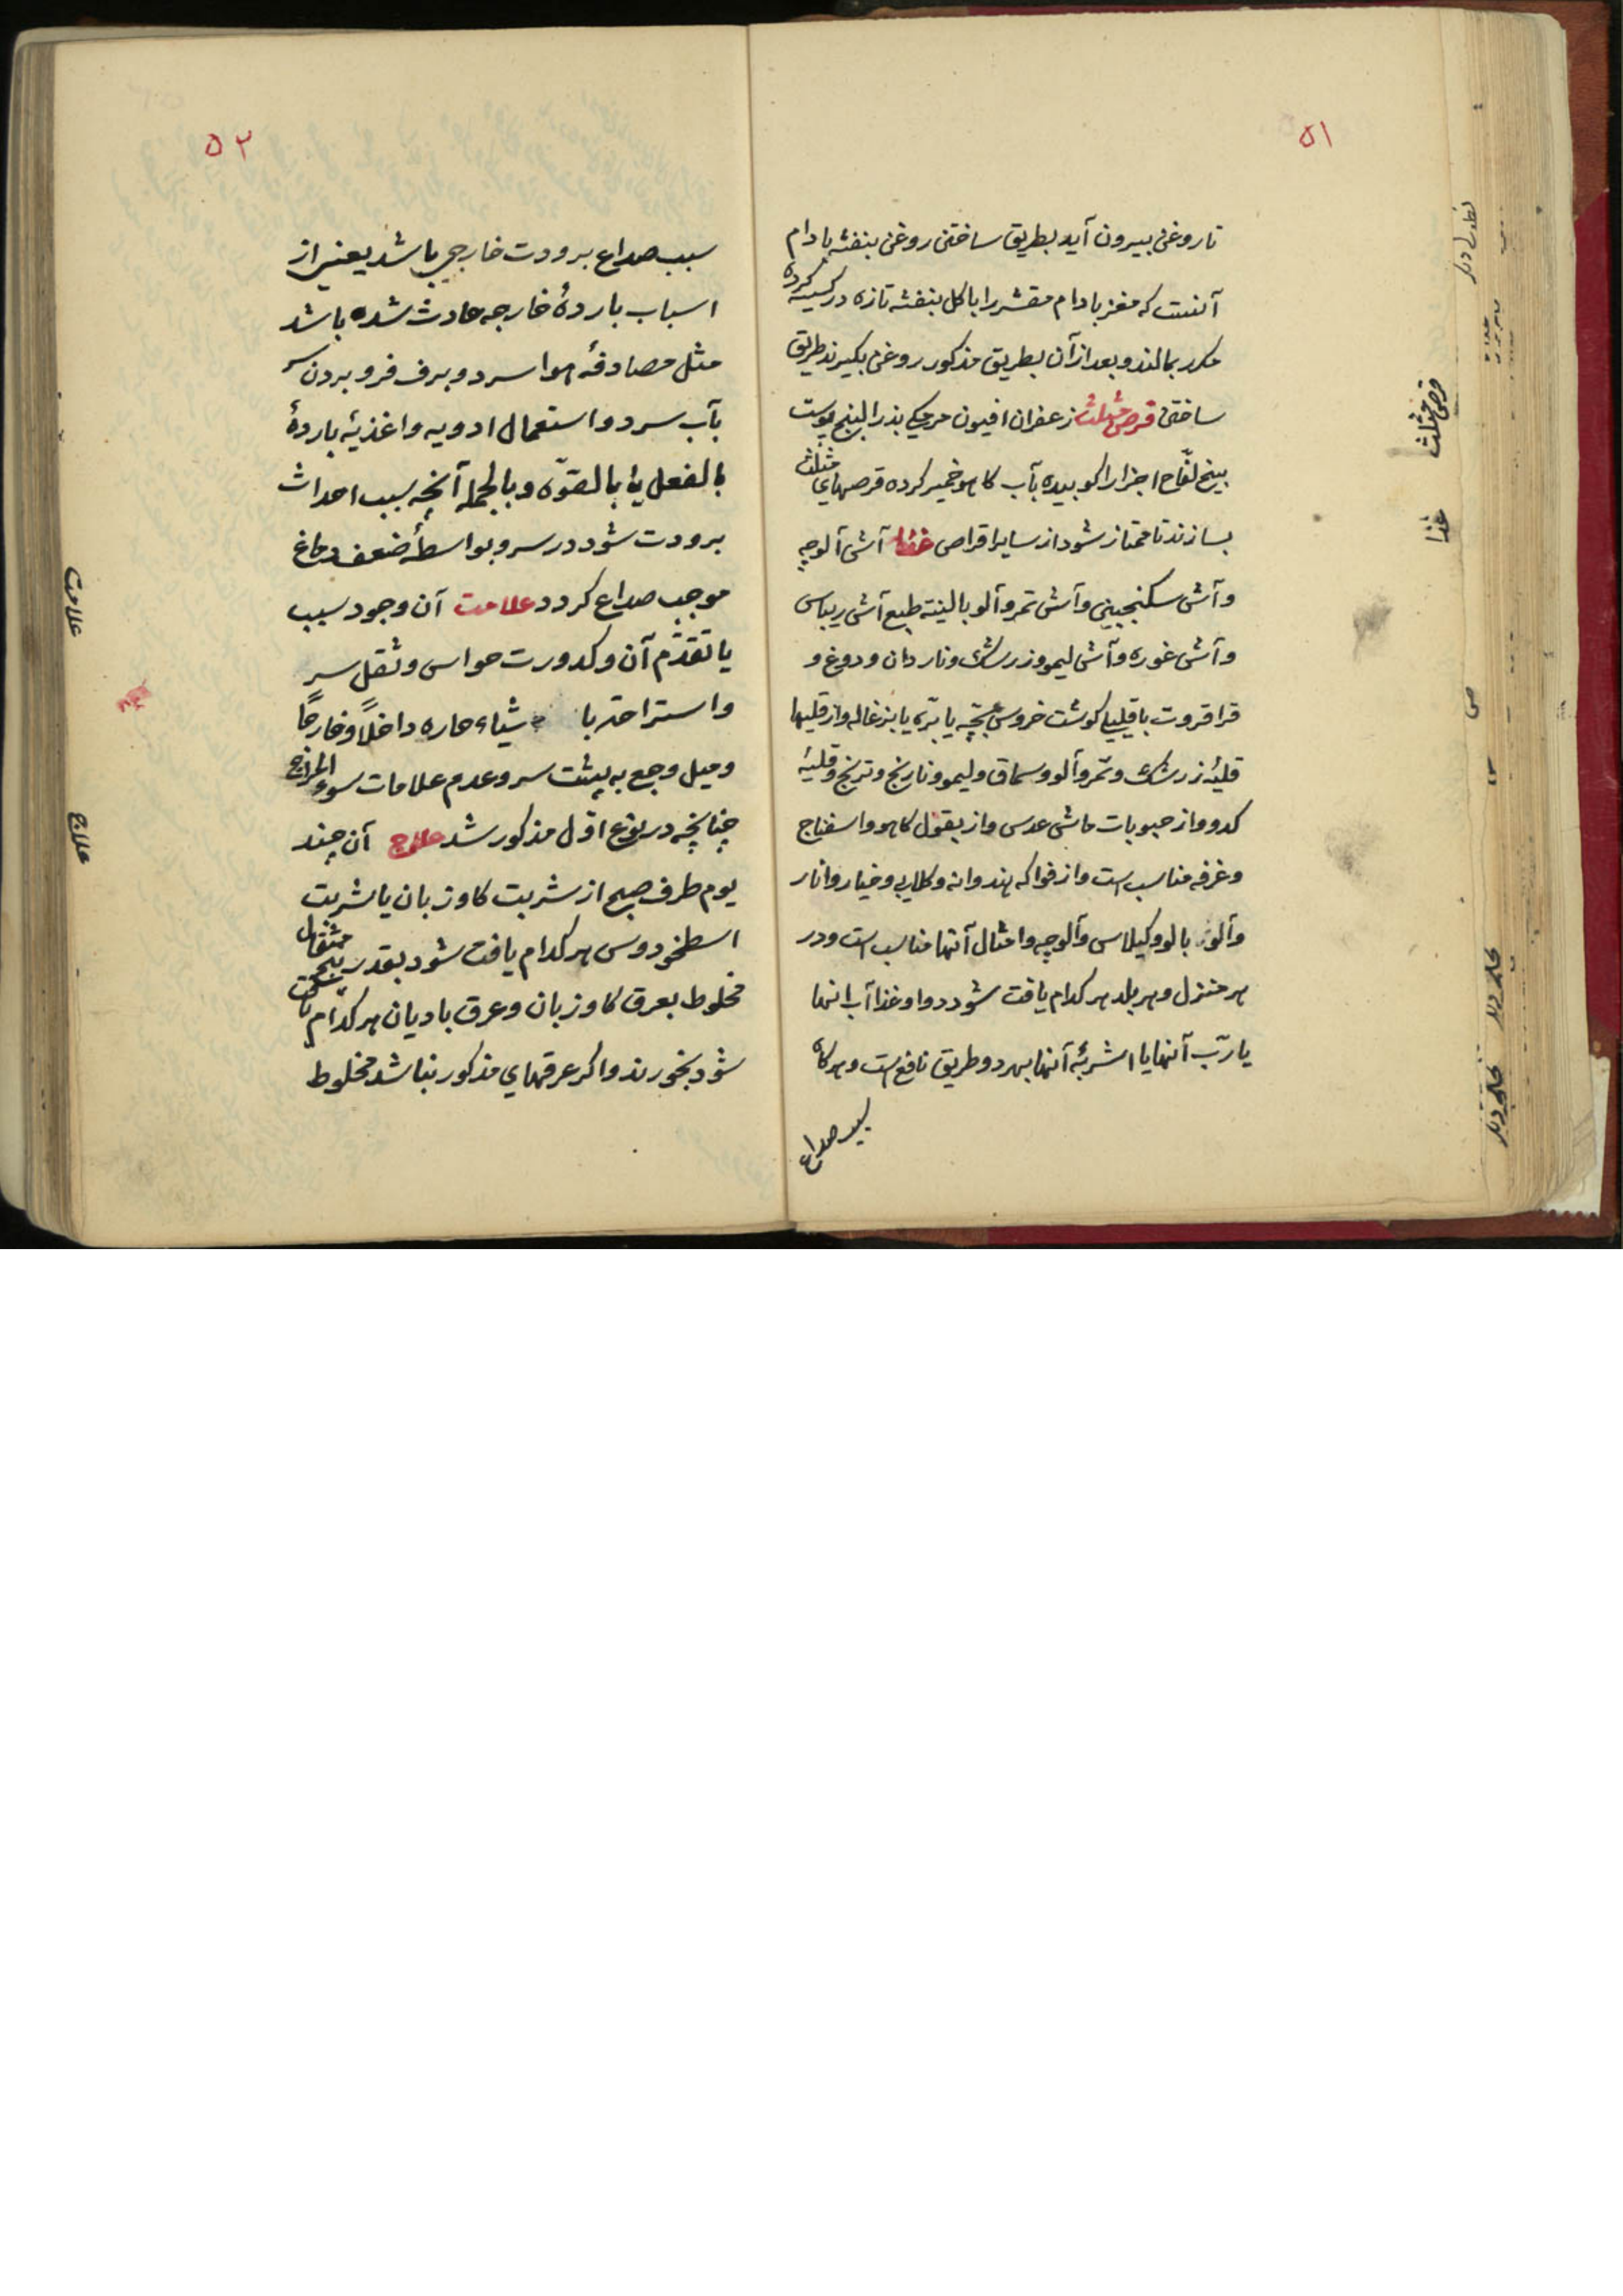 ۵۱
تا روغن بیرون آید بطریق ساختن روغن بنفشه بادام
آنست که مغز بادام مقشر را با کل بنفشه تازه در کیسه کرده
مکرر بمالند و بعد از آن بطریق مذکور روغن بکیرند طریق
ساختن قرص مثلث زعفران افیون مرمکی بذر البنج پوست
بیخ لفّاح اجزا را کوبیده بآب کاهو خمیر کرده قرصهای مثلث
بسازند تا ممتاز شود از سایر اقراص غذا آش آلوچه
وآش سکنجبین وآش تمر وآلو بالینة طبع آش ریباس
وآش غوره وآش لیمو وزرشک وناردان ودوغ و
قراقروت با قلیها کوشت خروس بچّه یا برّه یا بزغاله واز قلیها
قلیۀ زرشک وتمر وآلو وسماق ولیمو ونارنج وترنج وقلیۀ
کدو واز حبوبات ماش عدس واز بقول کاهو واسفناج
وخرفه مناسب است واز فواکه هندوانه وکلابی وخیار وانار
وآلو بالو وکیلاس وآلوچه وامثال آنها مناسب است ودر
هر منزل وهر بلد هر کدام یافت شود دوا وغذا آب انها
یا ربّ آنها یا اشربۀ آنها بهر دو طریق نافع است وهرکاه
سبب صداع
قرص مثلث
غذا
۵۲
سبب صداع برودت خارجی باشد یعنی از
اسباب باردۀ خارجه حادث شده باشد
مثل مصادفۀ هوا سرد وبرف فرو بردن سر
بآب سرد واستعمال ادویه واغذیۀ باردۀ
بالفعل یا بالقوّه وبالجمله آنچه سبب احداث
برودت شود در سر وبواسطۀ ضعف دماغ
موجب صداع کردد علامت آن وجود سبب
یا تقدّم آن وکدورت حواس وثقل سر
واستراحة با شیاء حاره داخلاً وخارجاً
ومیل وجع به پشت سر وعدم علامات سوء المزاج
چنانچه در نوع اوّل مذکور شد علاج آن چند
یوم طرف صبح از شربت کاوزبان یا شربت
اسطخودوس هر کدام یافت شود بقدر پنج مثقال
مخلوط بعرق کاوزبان وعرق بادیان هر کدام یافت
شود بخورند واکر عرقهای مذکور نباشد مخلوط
علامت
علاج